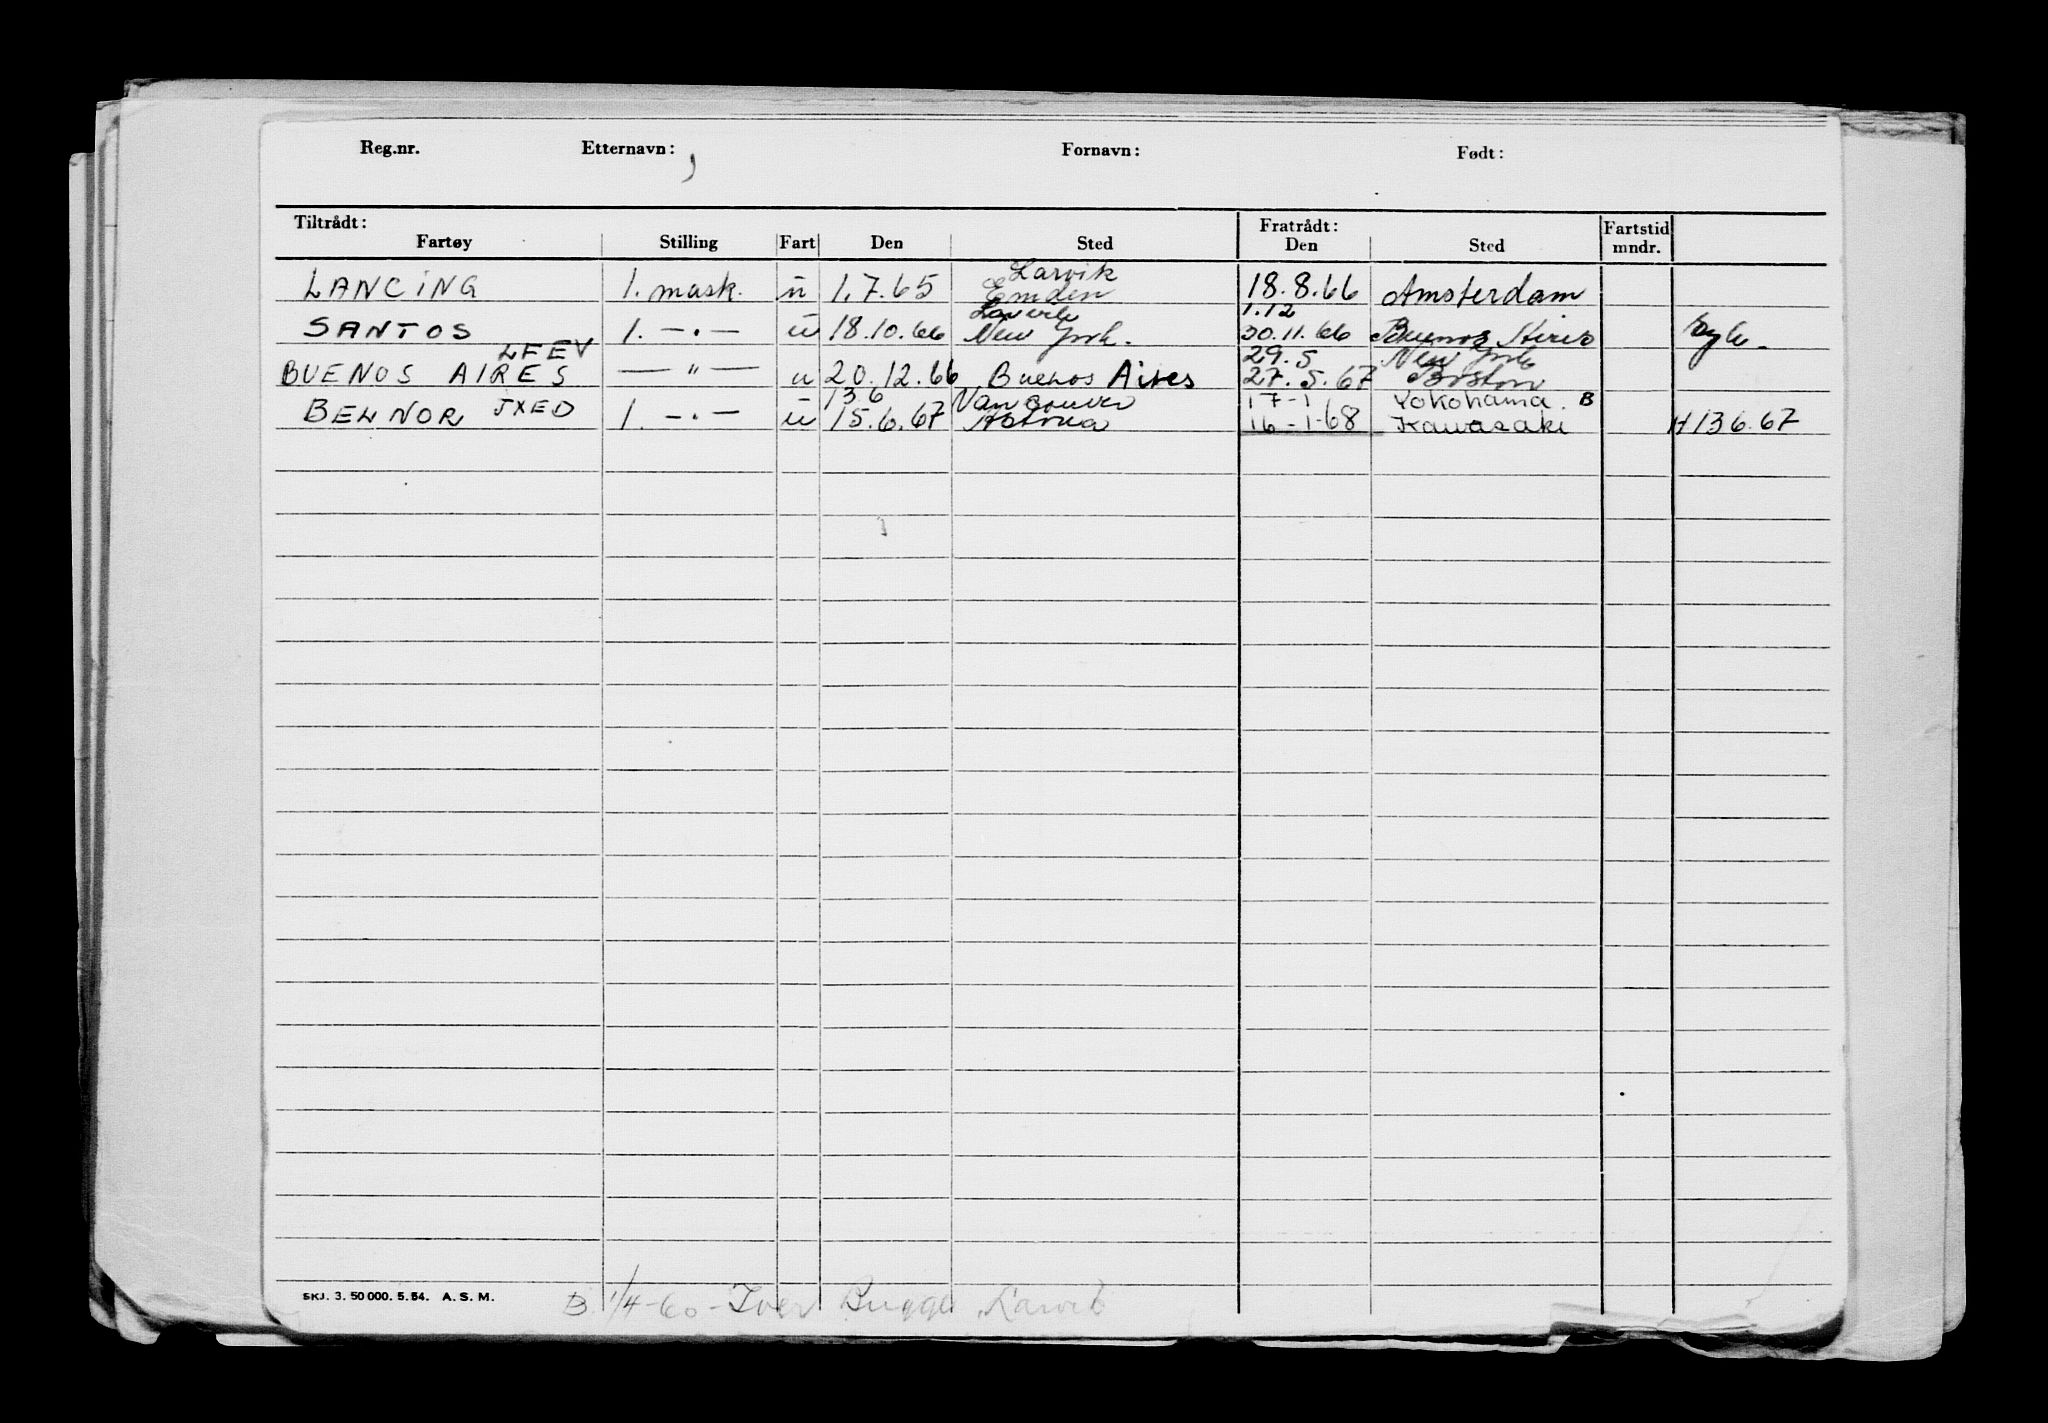 Reg.nr. Etternavn: Fornavn: Født:
Tiltrådt: Fratrådt:
Fartøy Stilling Fart Den Sted Den Sted Fartstid mndr.
Larvik
LANCING 1. mask. u 1.7.65 Emden 18.8.66 Amsterdam
Larvik 1.12
SANTOS 1. —"— u 18.10.66 New York. 30.11.66 Buenos Aires syk.
LFEV 29.5 New York
BUENOS AIRES —"— u 20.12.66 Buenos Aires 27.5.67 Boston
13.6 Vancouver 17-1 Yokohama. B
BELNOR JXED 1. —"— u 15.6.67 Astoria 16-1-68 Kawasaki H 13 6.67
SKJ. 3. 50 000. 5. 54. A. S. M.
B. 1/4-60 - Iver Bugge Larvik